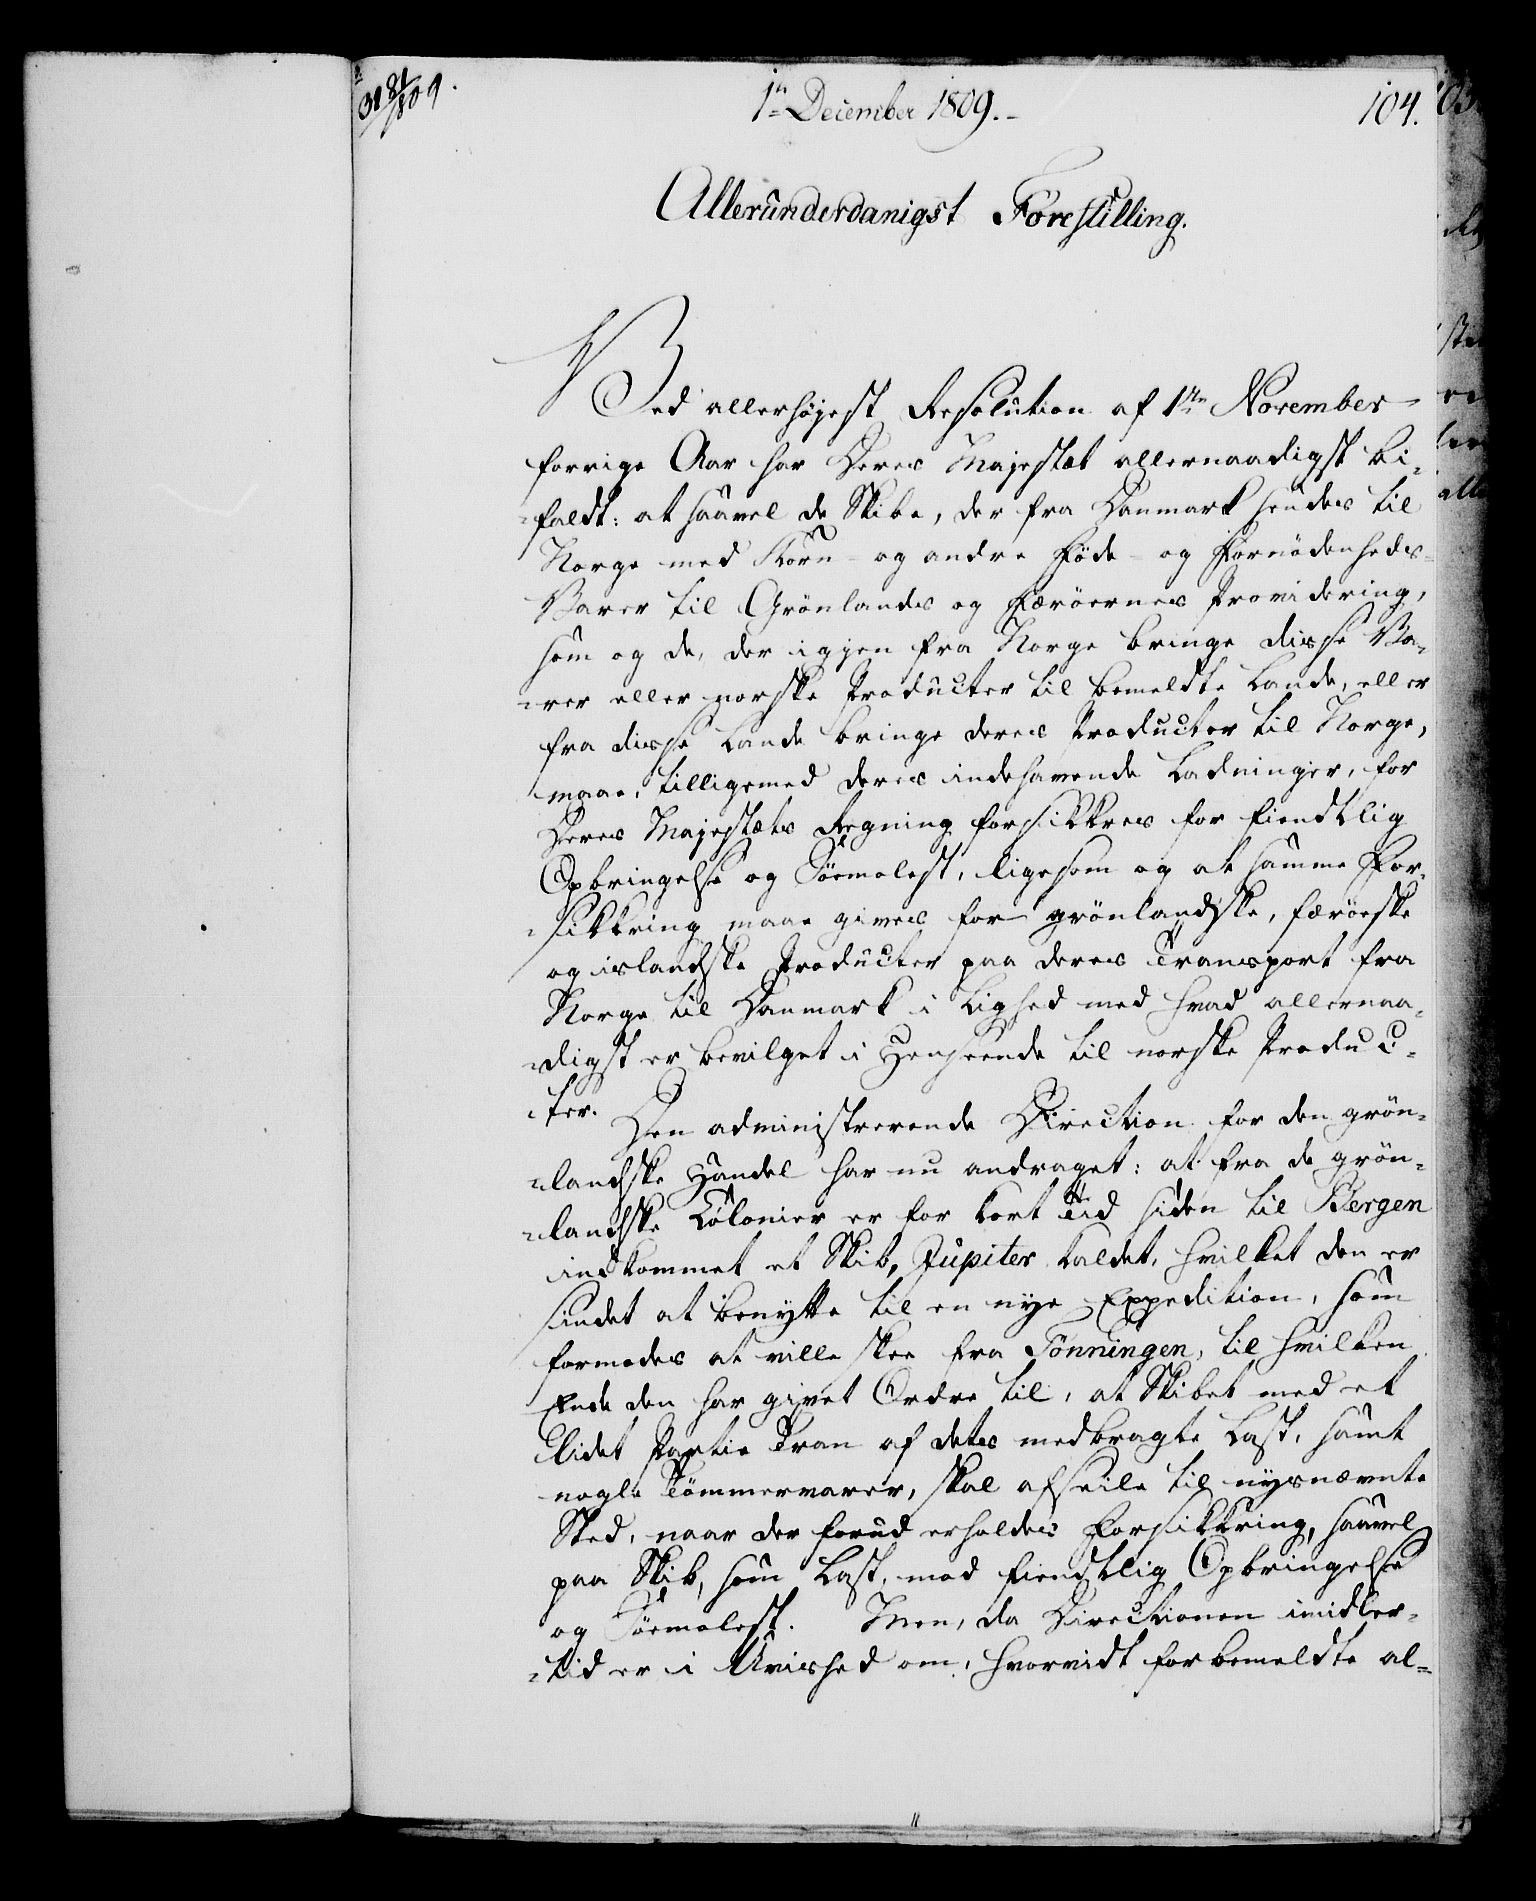 1n December 1809.-
104.
Allerunderdanigst Forestilling.
Ved allerhöjest Resolution af 1ste November
forrige Aar har Deres Majestæt allernaadigst bi-
faldt: at saavel de Skibe, der fra Danmark sendes til
Norge med Korn- og andre Föde- og Fornödenheds-
Varer til Grönlands og Færöernes Providering,
som og de, der igjen fra Norge bringe disse Va-
rer eller norske Producter til bemeldte Lande, eller
fra disse Lande bringe deres Producter til Norge,
maae, tilligemed deres indehavende Ladninger, for
Deres Majestæts Regning forsikkres for fiendtlig
Opbringelse og Söemolest, ligesom og at samme For-
sikkring maae gives for grönlandske, færöeske
og islandske Producter paa deres Transport fra
Norge til Danmark i Lighed med hvad allernaa-
digst er bevilget i Henseende til norske Produc-
ter.
Den administrerende Direction for den grön-
landske Handel har nu andraget: at fra de grön-
landske Colonier er for kort Tid siden til Bergen
indkommet et Skib, Jupiter kaldet, hvilket den er
sindet at benytte til en nye Expedition, som
formodes at ville skee fra Tönningen, til hvilken
Ende den har givet Ordre til, at Skibet med et
lidet Partie Tran af dets medbragte Last, samt
nogle Tömmervarer, skal afseile til nysnævnte
Sted, naar der forud erholdes Forsikkring, saavel
paa Skib, som Last, mod fiendtlig Opbringelse
og Söemolest. Men, da Directionen imidler-
tid er i Uvished om, hvorvidt forbemeldte al-